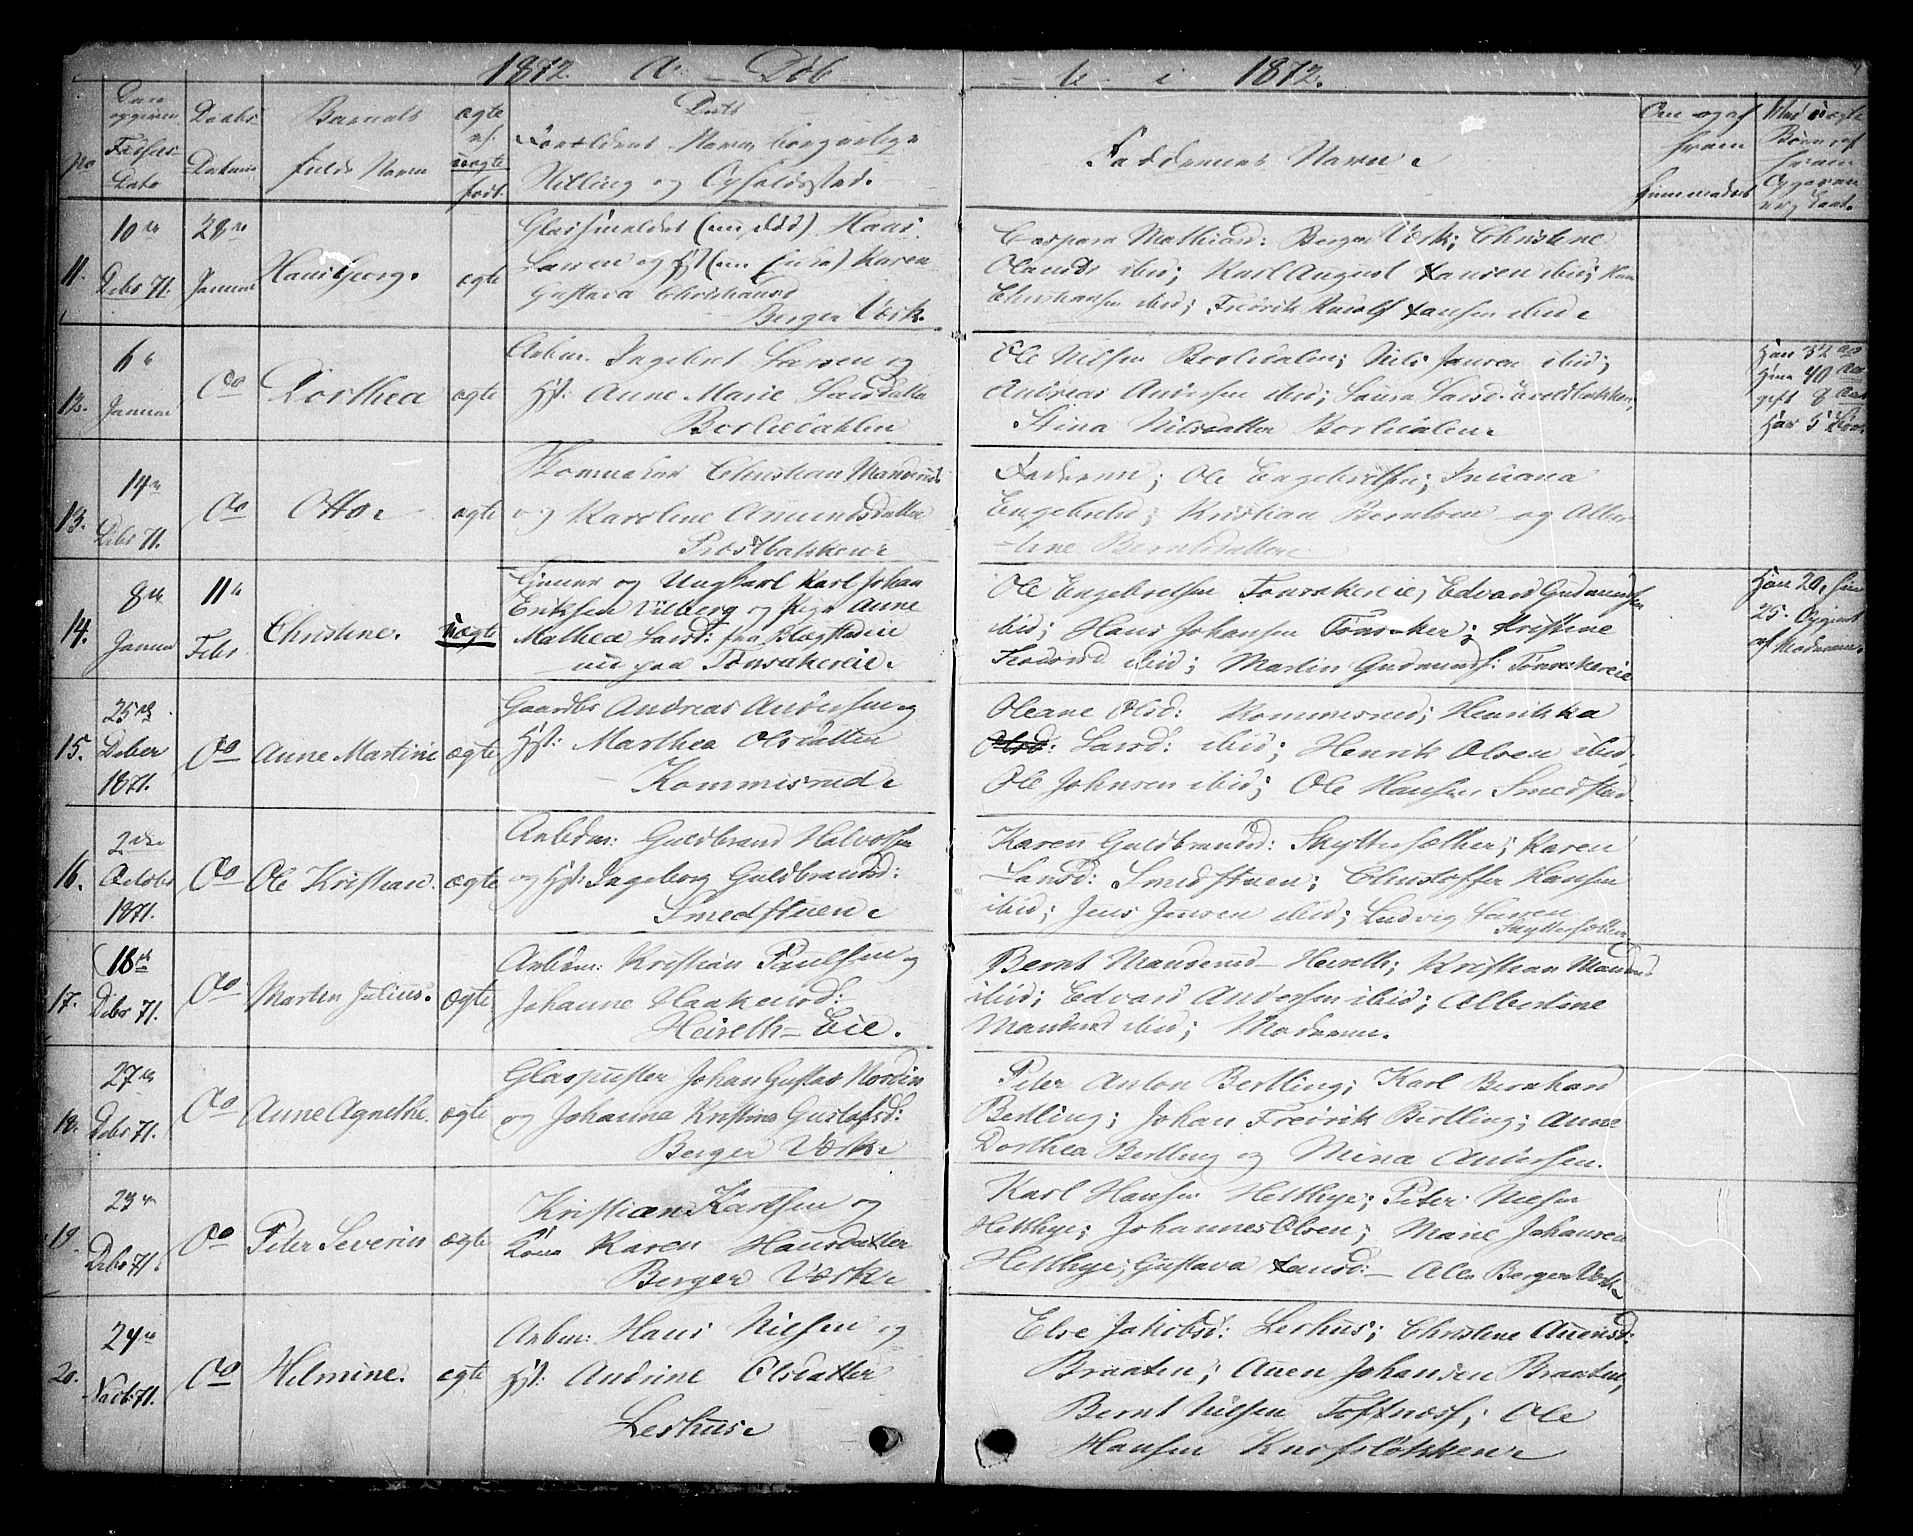 1872. A. Döb - te i 1872.
No
Den opgivne Födsels Dato
Daabs Datum
Barnets fulde Navn
ægte el. uægte födt.
Dets Forældres Navn borgerlige Stilling og Opholdssted.
Faddernes Navne
Om og af hvem hjemmedöbt
Ved uægte Børn af hvem Opgaven
11.
10de Debr 71.
28de Januar
Hans Georg.
ægte
Hans
Larsen og Hst Karen
Gustava Christiansd
Berger Værk.
Caspara Mathiasd: Berger Værk; Christine
Olausdr ibid; Karl August Hansen ibid;
Christiansen ibid; Fredrik Rudolf Hansen ibid.
12.
6te Januar
Do
Dorthea
ægte
Arbm. Ingebret Larsen og
Hst: Anne Marie Larsdatter
Borlidahlen
Ole Nilsen Borlidalen; Nils Jansen ibid;
Andreas Andersen ibid; Laura Larsd.
Stina Nilsdatter Borlidalen.
Han 32 Aar
Hun 40 Aar
gift 8 Aar
Har 5 Börn
13.
14de Debr 71.
Do
Otto.
ægte
Christian Manderud
og Karoline Amundsdatter
Præstbakken.
Faderen; Ole Engebretsen; Juliana
Engebretsd; Kristian Berntsen og Alber-
tine Berntsdatter
14.
8de Januar
11te Febr
Christine.
uægte
og Ungkarl Karl Johan
Eriksen Vilberg og Pige Anne
Mathea Larsd: fra
nu paa Tönsakereie.
Ole Engebretsen Tönsakereie; Edvard Gudmundsen
ibid; Hans Johansen Tönsaker; Kristine
ibid; Martin Gudmunds: Tönsakereie
Han 20, hun
25. Opgivet
af Moderen.
15.
25de Deber 1871.
Do
Anne Martine
ægte
Gaardbr Andreas Andersen og
Hst: Marthea Olsdatter
Kommisrud.
Oleane Olsd: Kommisrud; Henrikka
Olsd: Larsd: ibid; Henrik Olsen ibid,
Ole Johnsen ibid; Ole Hansen Smedstad.
16.
2den Octobr 1871.
Do
Ole Kristian.
ægte
Arbdm: Guldbrand Halvorsen
og Hst: Ingeborg Guldbrandsd:
Smedstuen.
Karen Guldbrandsd: Skyttesæther; Karen
Larsd: Smedstuen; Christoffer Hansen
ibid; Jens Jensen ibid; Ludvig Larsen
Skyttesæther
17.
18de Debr 71.
Do
Martin Julius.
Ægte
Arbdm: Kristian Paulsen og
Johanne Haakensd:
Heireth-Eie.
Bernt Manderud Heireth; Kristian Manderud
ibid; Edvard Andersen ibid; Albertine
Manderud ibid; Moderen.
18.
27de Debr 71.
Do
Anne Agnethe.
ægte
Glaspuster Johan Gustav Nordin
og Johanna Kristine Gustafsd:
Berger Værk.
Peter Anton Bertling; Karl Bernhard
Bertling; Johan Fredrik Bertling; Anne
Dorthea Bertling og Mina Andersen.
19.
23de Debr 71.
Do
Peter Severin
ægte
Kristian Karlsen og
Kone Karen Hansdatter
Berger Værk.
Karl Hansen Helthye; Peter Nilsen
Helthye; Johannes Olsen; Marie Johansen
Helthye; Gustava Hansd: - Alle Berger Værk.
20.
24de Novb: 71.
Do
Helmine.
ægte
Arbm: Hans Nilsen og
Hst: Andrine Olsdatter
Leshus.
Else Jakobsd: Leshus; Christine Auensd:
Braaten; Auen Johansen Braaten,
Bernt Nilsen Toftnæs; Ole
Hansen Knofslökken.